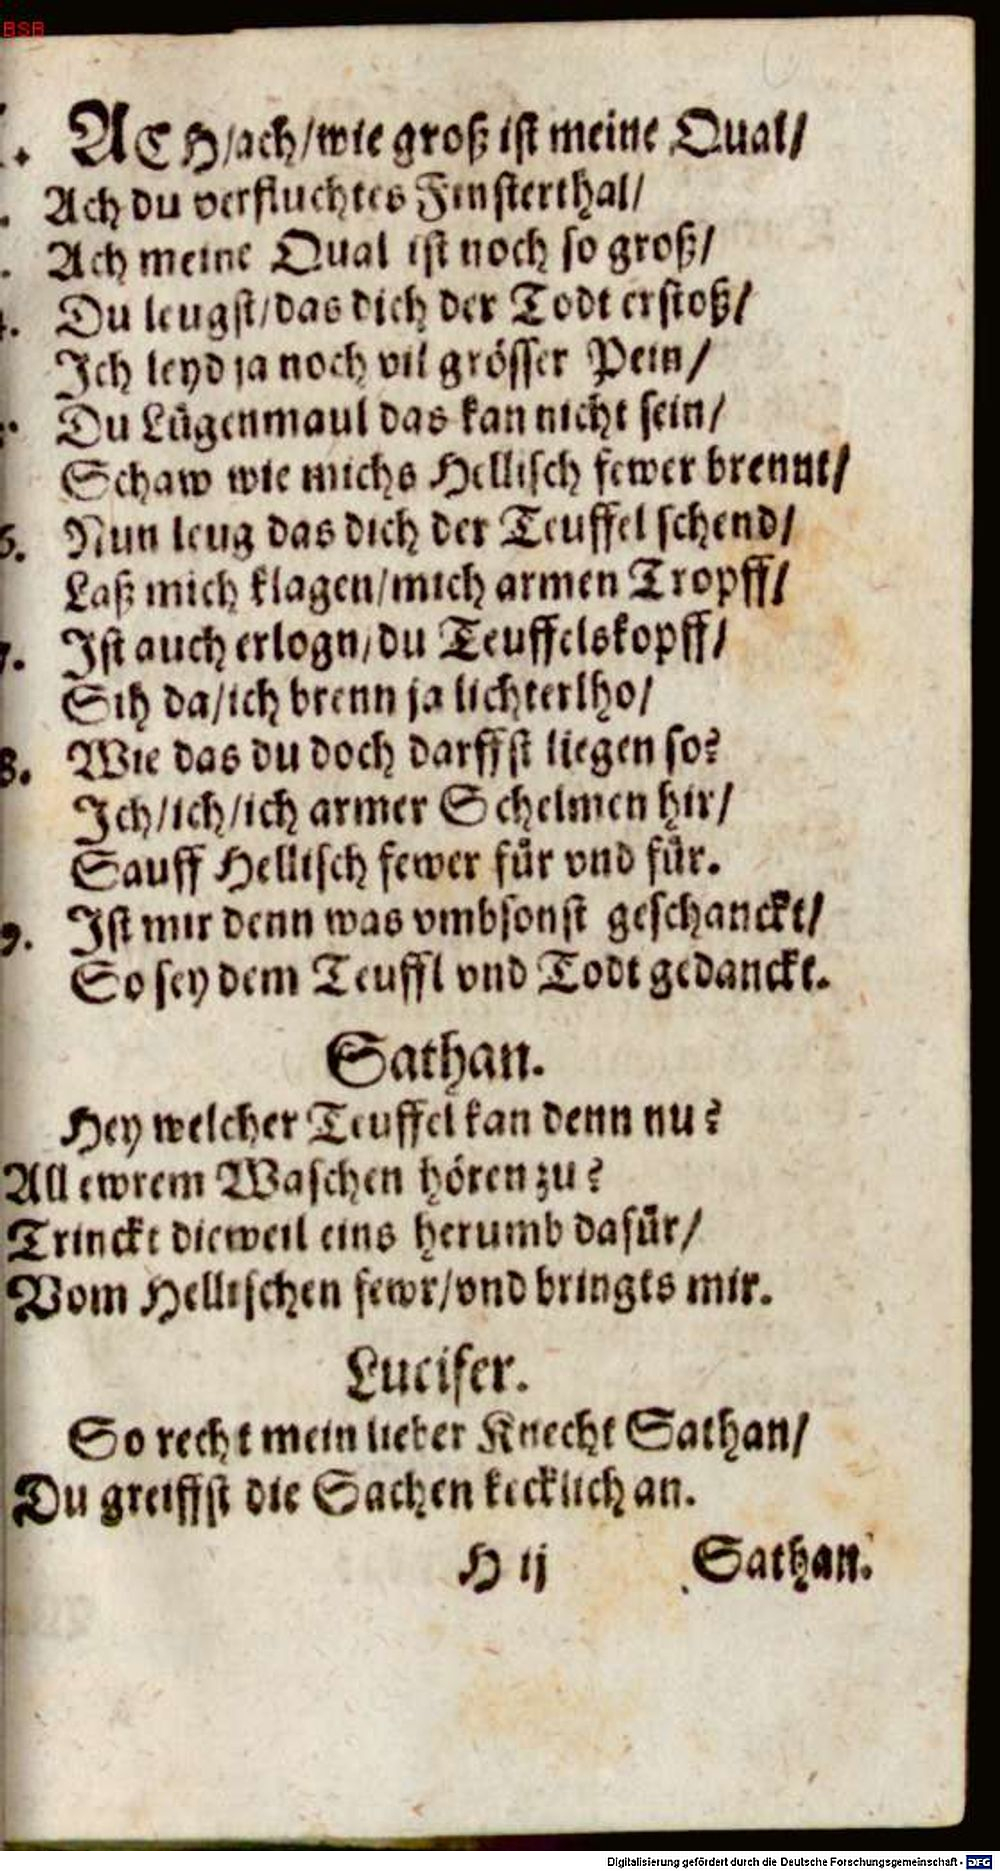 BSB
. ACH/ach/wie groß ist meine Qual/
. Ach du verfluchtes Finsterthal/
. Ach meine Qual ist noch so groß/
4. Du leugst/das dich der Todt erstoß/
Ich leyd ja noch vil grösser Pein/
Du Lügenmaul das kan nicht sein/
Schaw wie michs Hellisch fewer brennt/
6. Nun leug das dich der Teuffel schend/
Laß mich klagen/mich armen Tropff/
7. Ist auch erlogn/du Teuffelskopff/
Sih da/ich brenn ja lichterlho/
8. Wie das du doch darffst liegen so?
Ich/ich/ich armer Schelmen hir/
Sauff Hellisch fewer für vnd für.
9. Ist mir denn was vmbsonst geschanckt/
So sey dem Teuffl vnd Todt gedanckt.
Sathan.
Hey welcher Teuffel kan denn nu?
All ewrem Waschen hören zu?
Trinckt dieweil eins herumb dafür/
Vom Hellischen fewr/vnd bringts mir.
Lucifer.
So recht mein lieber Knecht Sathan/
Du greiffst die Sachen kecklich an.
H ij Sathan.
Digitalisierung gefördert durch die Deutsche Forschungsgemeinschaft - DFG